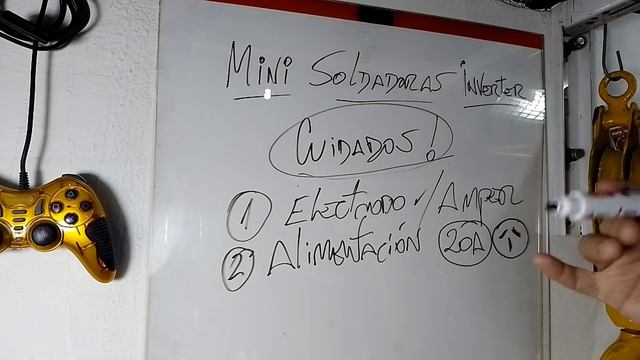 Mini SOLDADORAS inverter
Cuidados!
1 Electrodo / Amper
2 Alimentación 20A